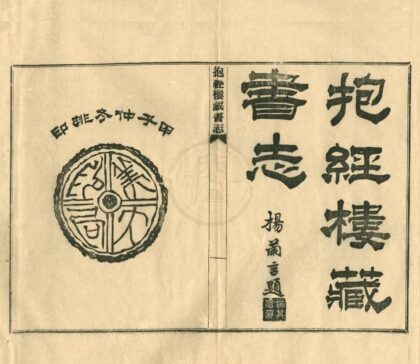 抱經樓藏
書志
楊言題
抱經樓藏書志
甲子仲冬排印
美大
書局